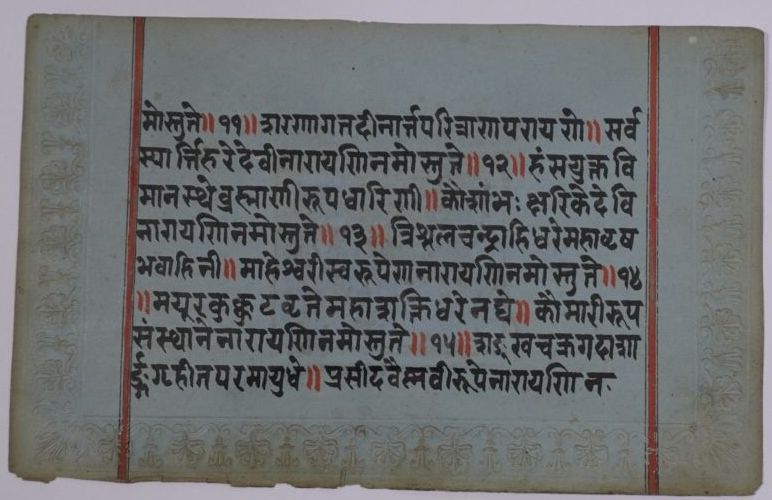 मोस्तुते॥ ११॥ शरणागतदीनार्त्तपरित्राणपरायणे॥ सर्व
स्यार्त्तिहरेदेवीनारायणिनमोस्तुते॥ १२॥ हंसयुक्तवि
मानस्थेब्रह्माणीरूपधारिणी॥ कौशांभः क्षरिकेदेवि
नारायणिनमोस्तुते॥ १३॥ त्रिशूलचन्द्राहिधरेमहावृष
भवाहिनी॥ माहेश्वरीस्वरूपेणनारायणिनमोस्तुते॥ १४
॥ मयूरकुक्कुटवृतेमहाशक्तिधरेनघे॥ कौमारीरूप
संस्थानेनारायणिनमोस्तुते॥ १५॥ शङ्खचक्रगदाशा
र्ङ्गगृहीतपरमायुधे॥ प्रसीदवैस्नवीरूपेनारायणिन